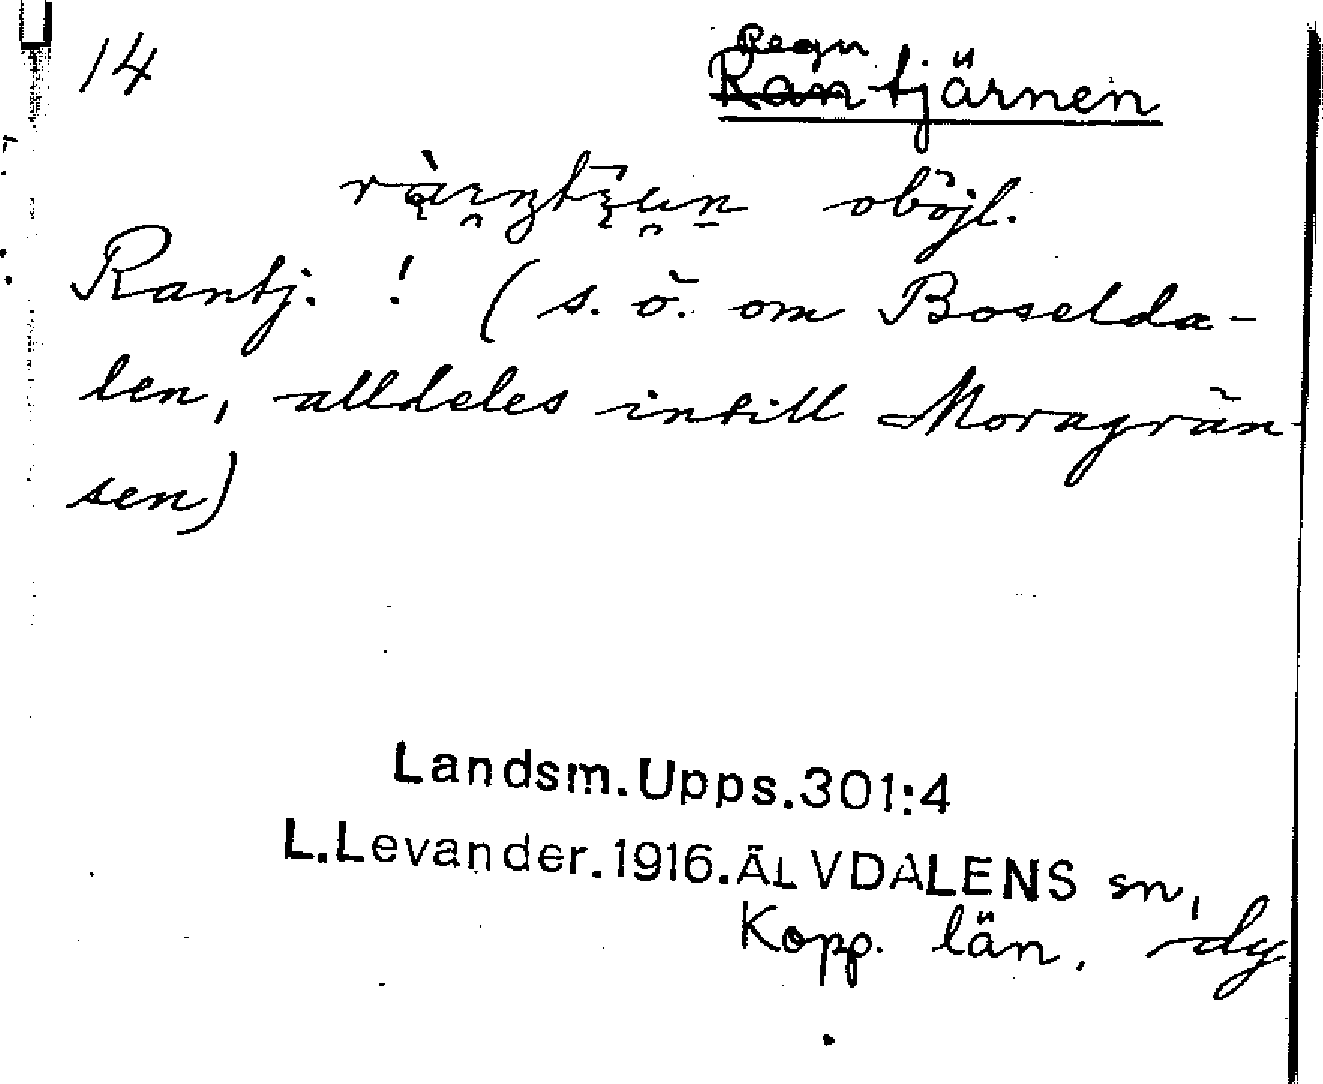 14
Regn
Ran-tjärnen
oböjl.
Rantj. ! (s. ö. om Boselda-
len, alldeles intill Moragrän-
sen)
Landsm.Upps.301:4
L.Levander.1916.ÄLVDALENS sn,
Kopp. län.